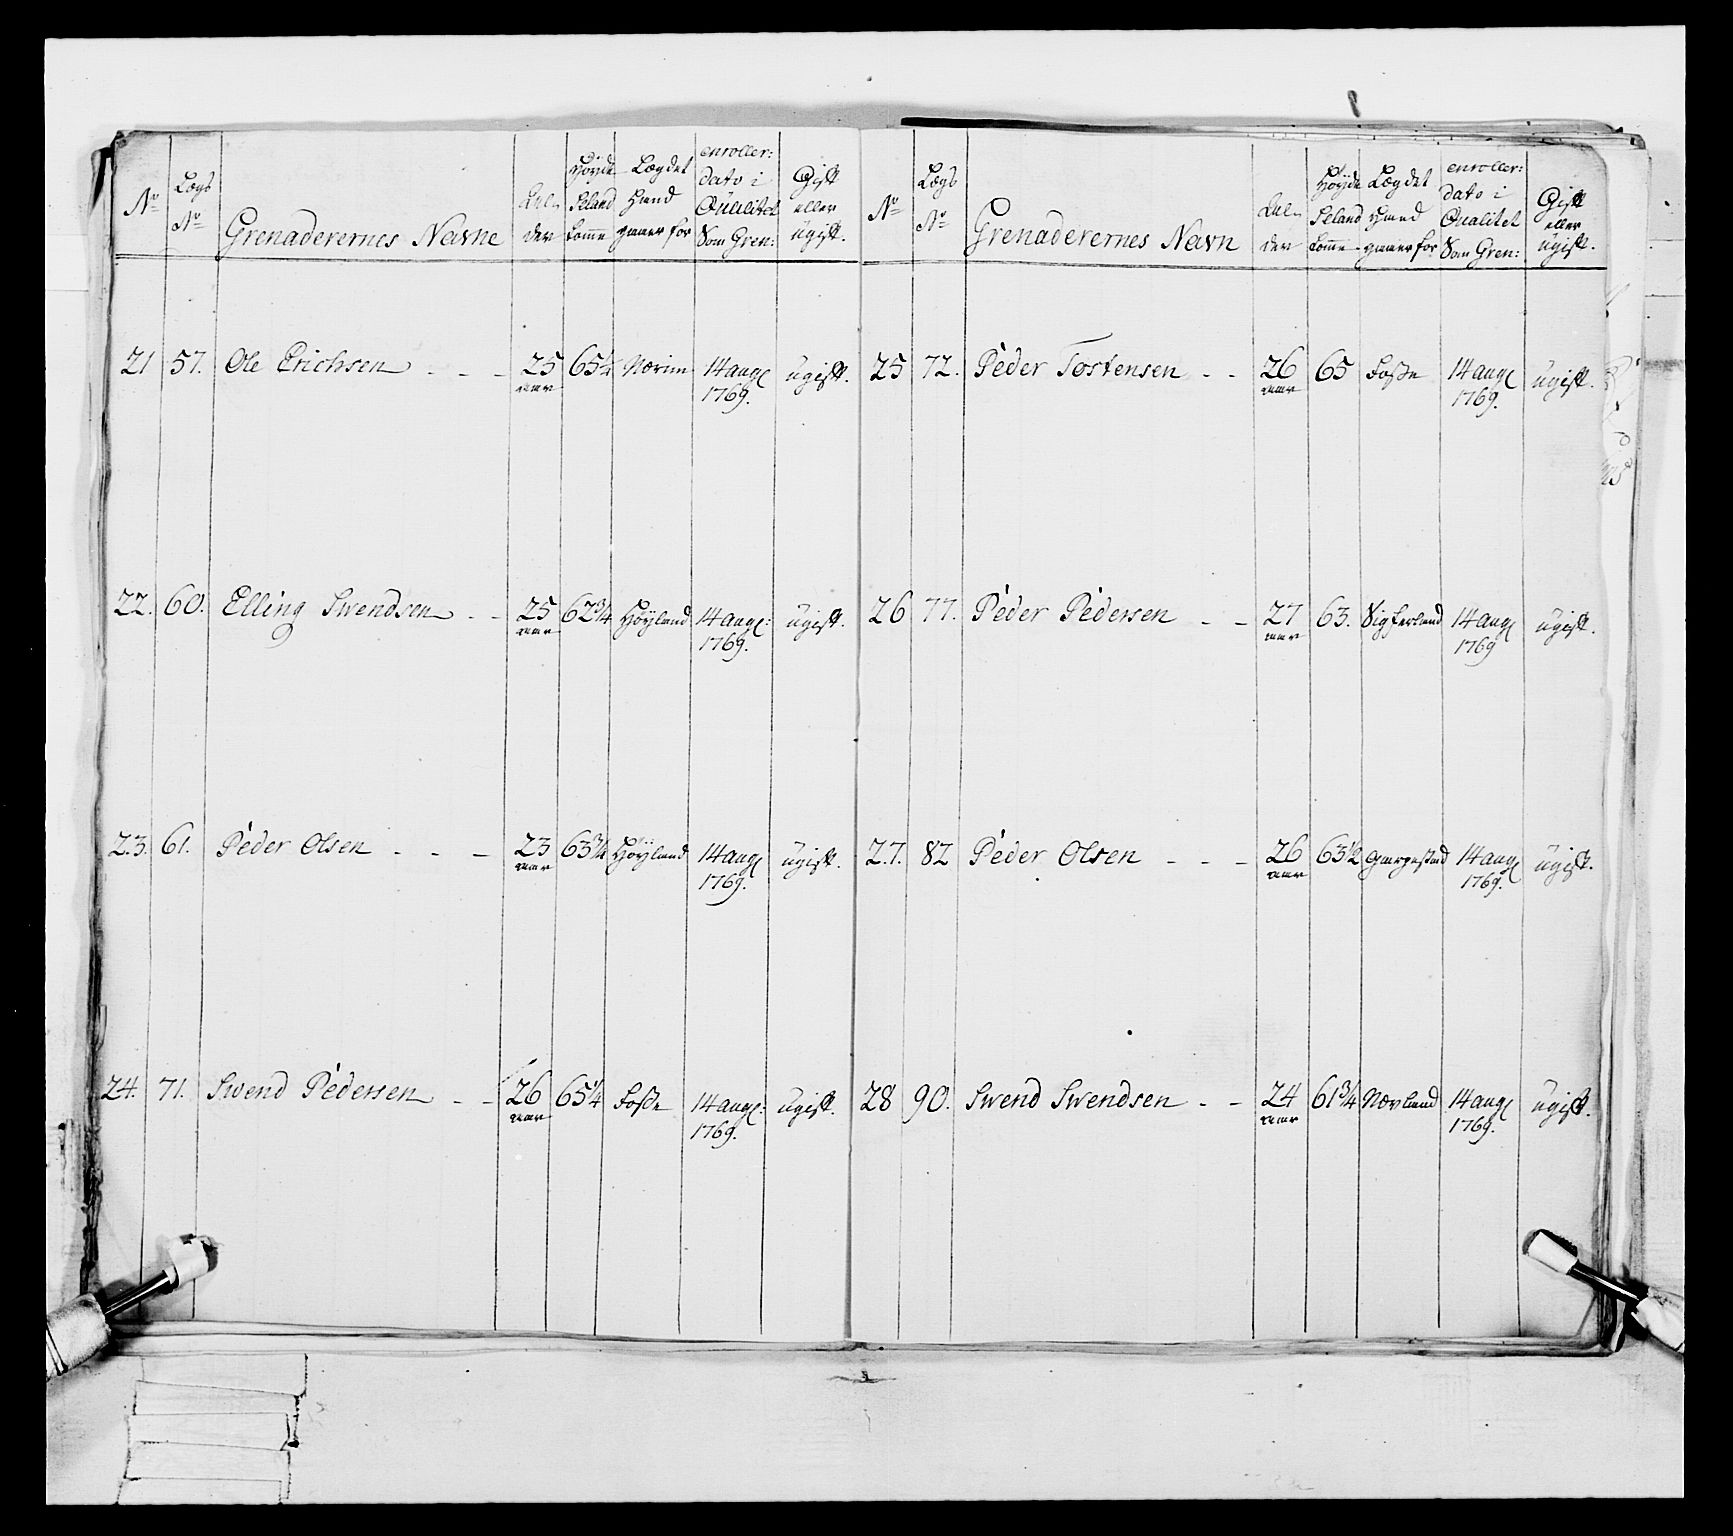 No Lægs No Grenaderernes Navne Alderder Høyde Lægdet enroller: Gift
Hand dato i eller
Qualitet ugift.
Som Gren:
21 57. Ole Erichsen - - - 25 65¼ Nærim 14 aug ugift.
aar 1769.
22. 60. Elling Swendsen - - 25 62¾ Höyland 14 aug: ugift.
aar 1769.
23. 61. Peder Olsen - - - 23 63¾ Höyland 14 aug ugift.
aar 1769.
24. 71. Swend Pedersen - - 26 65¼ Fosse 14 aug: ugift.
aar 1769.
No Lægs No Grenaderernes Navn Høyde Lægdet enroller: Gift
dato i eller
Qualitet ugift.
Som Gren:
25 72. Peder Tostensen - - 26 65 Fosse 14 aug ugift.
aar 1769.
26 77. Peder Pedersen - - 27 63. Sigferland 14 aug ugift.
aar 1769
27. 82 Peder Olsen - - - 26 63½ 14 aug ugift.
aar 1769.
28 90. Swend Swendsen - - 24 61¾ Nævland 14 aug ugift.
aar 1769.